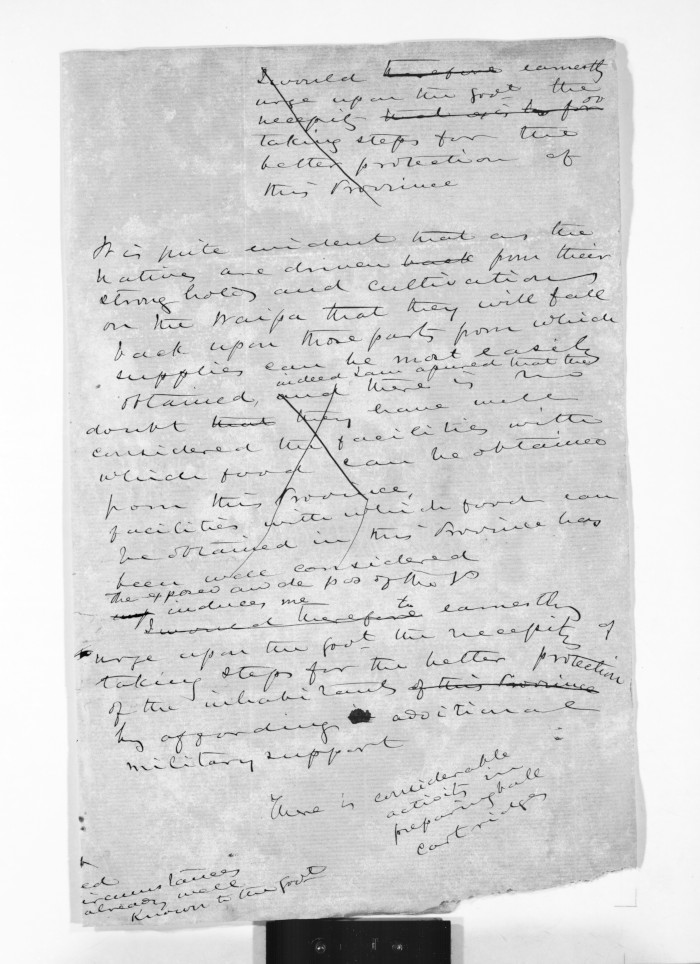 I would therefore earnestly
urge upon the govt the
necessity
taking steps for the
better protection of
this Province
It is quite evident that as the
Natives are driven back from their
strongholds and cultivations
on the Waipa that they will fall
back upon those parts from which
supplies can be most easily
indeed I am assured that they
obtained, and there is no
doubt that they have well
considered the facilities with
which food can be obtained
from this Province,
facilities with which food can
be obtained in this Province has
been well considered
the exposed and de pos of the
induces me
I would therefore to earnestly
urge upon the govt the necessity of
taking steps for the better protection
of the inhabitants of this Province
by affording additional
military support
There is considerable
activity in
preparing ball
cartridges
ed
ircumstances
already well
known to the Govt